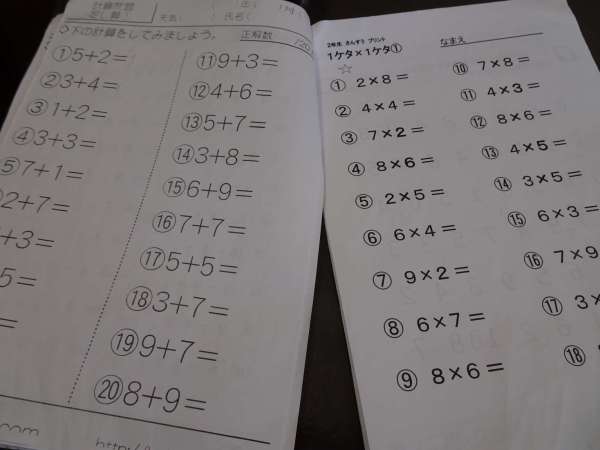 計算問題
足し算1
氏名（ ）氏名（
◇下の計算をしてみましょう。 正解数
①5+2=
②3+4=
③1+2=
④3+3=
⑤7+1=
2+7=
+3=
5=
=
⑪9+3=
⑫4+6=
⑬5+7=
⑭3+8=
⑮6+9=
⑯7+7=
⑰5+5=
⑱3+7=
⑲9+7=
⑳8+9=
2年生 さんすう プリント
1ケタ×1ケタ①
なまえ
☆
① 2×8=
② 4×4=
③ 7×2=
④ 8×6=
⑤ 2×5=
⑥ 6×4=
⑦ 9×2=
⑧ 6×7=
⑨ 8×6=
⑩ 7×8=
⑪ 4×3=
⑫ 8×6=
⑬ 4×5=
⑭ 3×5=
⑮ 6×3=
⑯ 7×9
⑰ 3×
⑱